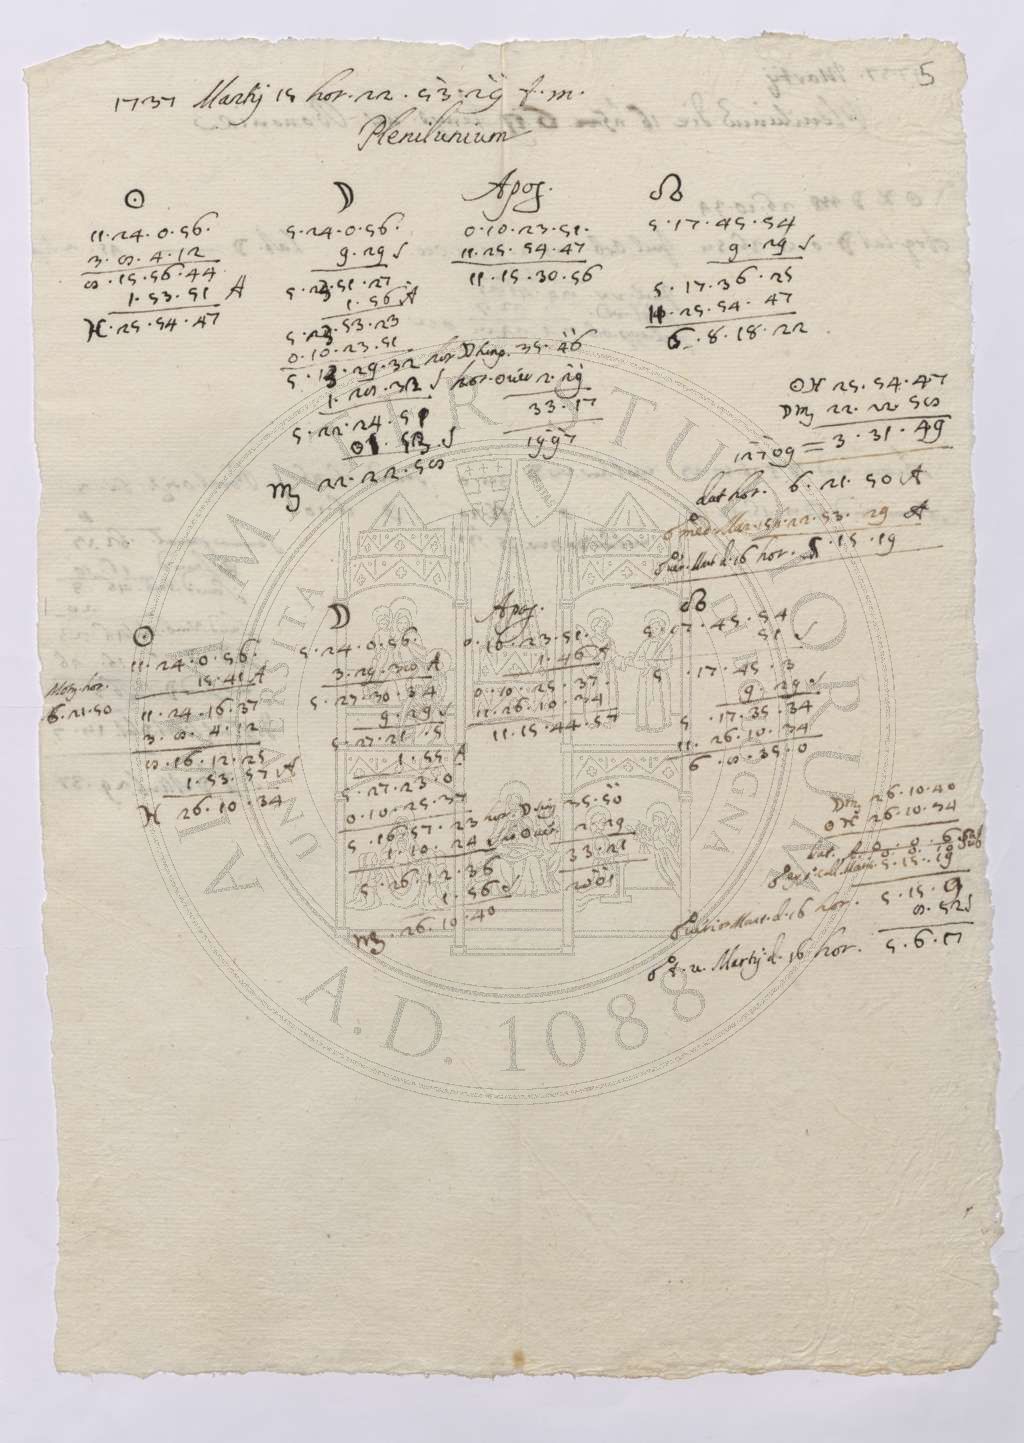 5
1737 Martij 15 hor. 22. 53. 29 t. m.
Plenilunium
☉ ☽ Apog. ☊
11. 24. 0. 56.
3. 8. 4. 12
8. 15. 56. 44
1. 53. 51 A
♓. 25. 54. 47
5. 24. 0. 56.
9. 29 S
5. 23. 51. 27
1. 56 A
5. 23. 53. 23
0. 10. 23. 51
5. 13. 29. 32
1. 28. 32 S
5. 22. 24. 51
1. 53. S
♍ 22. 22. 58
0. 10. 23. 51.
11. 25. 54. 47
11. 15. 30. 56
hor. ☽
35. 46
hor. 2. 29
33. 17
1997
5. 17. 45. 54
9. 29 S
5. 17. 36. 25
11. 25. 54. 47
6. 8. 18. 22
☉ ♓ 25. 54. 47
☽ ♍ 22. 22. 58
12709 = 3. 31. 49
dat hor. 6. 21. 50 A
☍ med. Mar. 15. 22. 53. 29 A
☍ Mart. d. 16 hor. 5. 15. 19
☉ ☽ Apog. ☊
hor.
6. 21. 50
11. 24. 0. 56.
15. 41 A
11. 24. 16. 37
3. 8. 4. 12
8. 16. 12. 25
1. 53. 57 A
♓ 26. 10. 34
5. 24. 0. 56.
3. 29. 38 A
5. 27. 30. 34
9. 29 S
5. 27. 21. 5
1. 55 A
5. 27. 23. 0
0. 10. 25. 37
5. 16. 57. 23
1. 10. 24 S
5. 26. 12. 36
1. 56 S
♍. 26. 10. 40
0. 10. 23. 51.
1. 46 A
0. 10. 25. 37.
11. 26. 10. 34
11. 15. 44. 57
hor. ☽
35. 50
2. 29
33. 21
2001
5. 17. 45. 54
51 S
5. 17. 45. 3
9. 29 S
5. 17. 35. 34
11. 26. 10. 34
6. 8. 35. 0
☽ ♍ 26. 10. 40
☉ ♓ 26. 10. 34
dat. 0. 0. 6.
5. 15. 19
☍ Mart. d. 16 hor. 5. 15. 9
8. 52 S
☍ t. u. Martij d. 16 hor. 5. 6. 17
ALMA MATER STUDIORUM
UNIVERSITÀ DI BOLOGNA
A.D. 1088